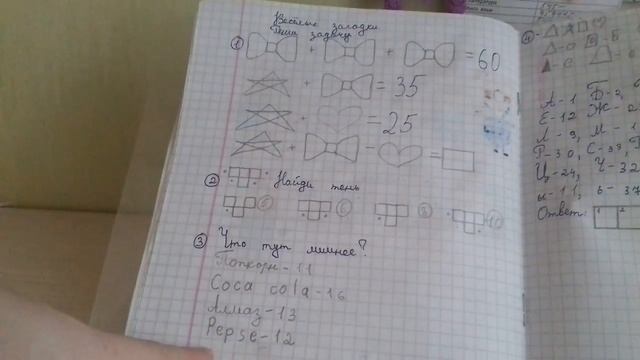 Весёлые загадки
Реши задачу
1 + + = 60
+ = 35
+ = 25
+ - =
2 Найди тень
3 Что тут лишнее?
Попкорн-11
Coca cola-16
Алмаз-13
Pepse-12
А-1 Б-2,
Е-12 Ж-2
Л-9, М-1
Ц-24, Ч-32
ы-11, ь-37
Ответ: